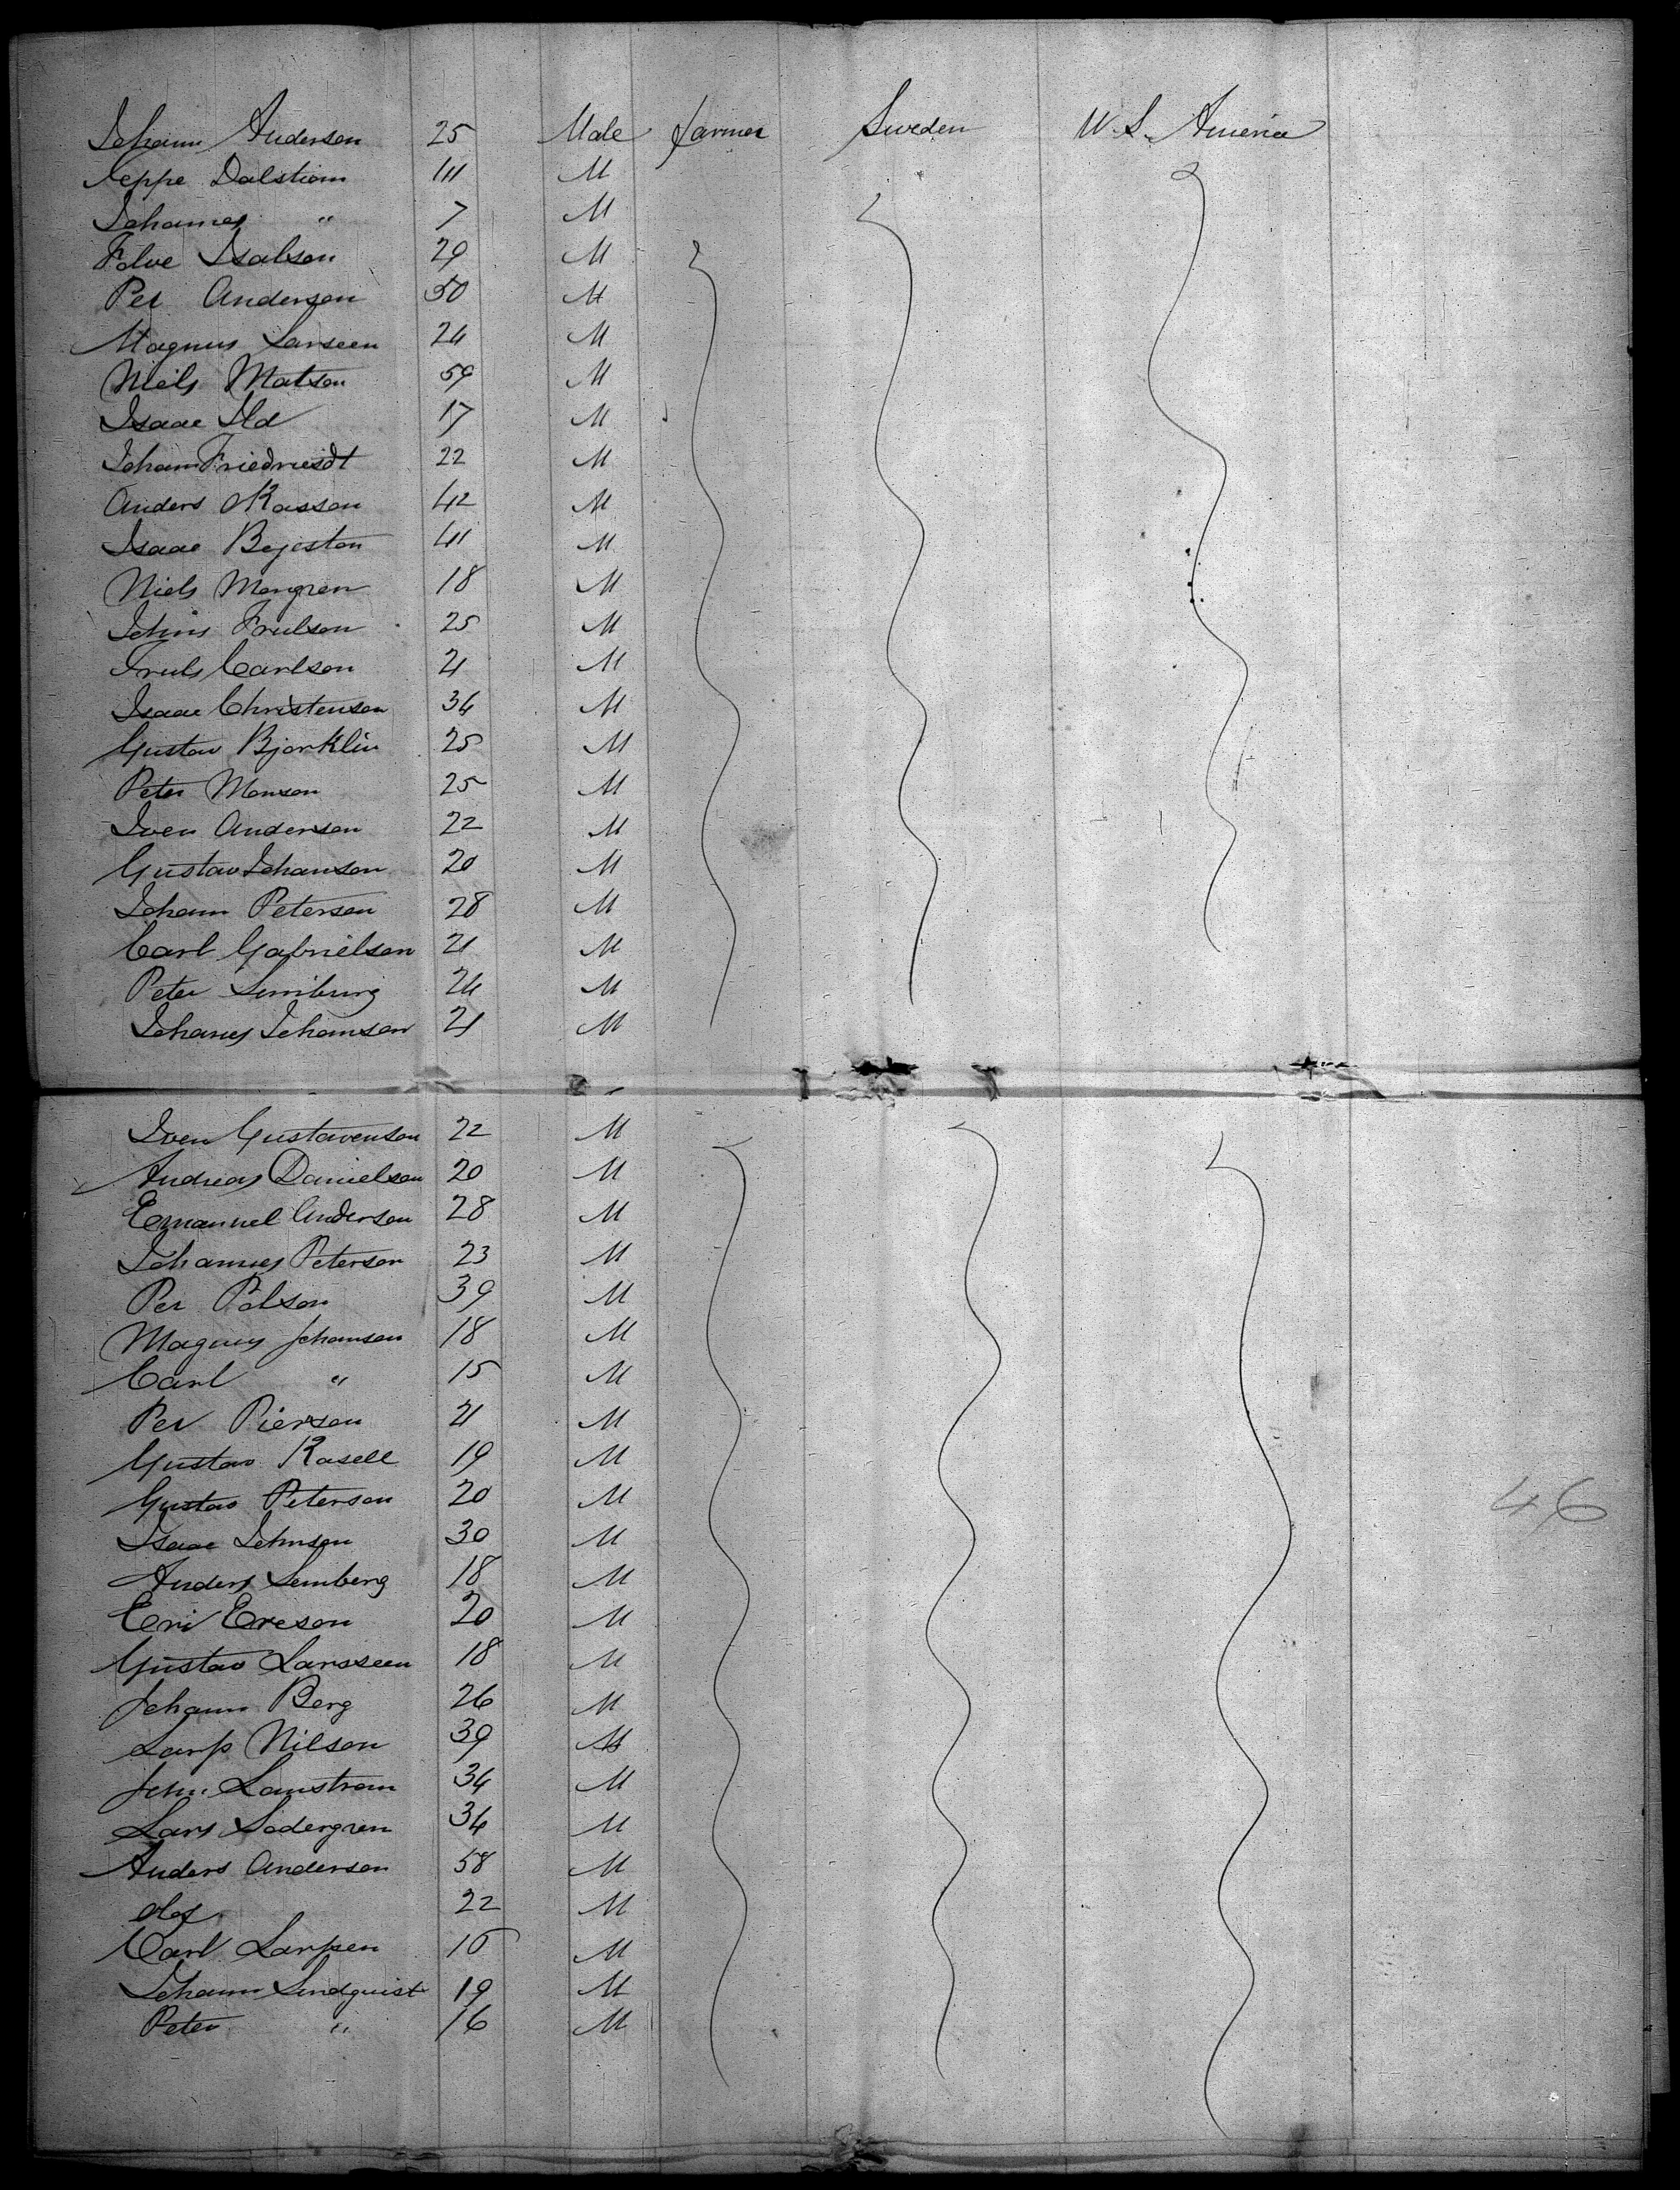 Johann Anderson 25 Male farmer Sweden U.S. America
Jeppe Dalstrom 41 M
Johannes " 7 M
Folve Isakson 29 M
Per Anderson 50 M
Magnus Larseen 24 M
Niels Matson 59 M
Isaac 17 M
Johann 22 M
Anders 42 M
Isaac 41 M
Niels 18 M
Trulson 25 M
Truls Carlson 21 M
Isaac Christenson 34 M
Gustav Bjorklin 25 M
Peter Monson 25 M
Sven Anderson 22 M
Gustav Johanson 20 M
Johann Peterson 28 M
Carl Gabrielson 21 M
Peter 24 M
Johanes Johanson 21 M
Sven Gustavenson 22 M
Andreas Danielson 20 M
Emanuel Anderson 28 M
Johannes Peterson 23 M
Per Polson 39 M
Magnus Johanson 18 M
Carl " 15 M
Per Pierson 21 M
Gustav Rosell 19 M
Gustav Peterson 20 M 46
Isaac Johnson 30 M
Anders Lemberg 18 M
Eric Ereson 20 M
Gustav Larsseen 18 M
Johann Berg 26 M
Lars Nilson 39 M
John Lanstrom 34 M
Lars Sodergren 34 M
Anders Anderson 58 M
Olof 22 M
Carl Larssen 16 M
Johann Lindquist 19 M
Peter " 16 M